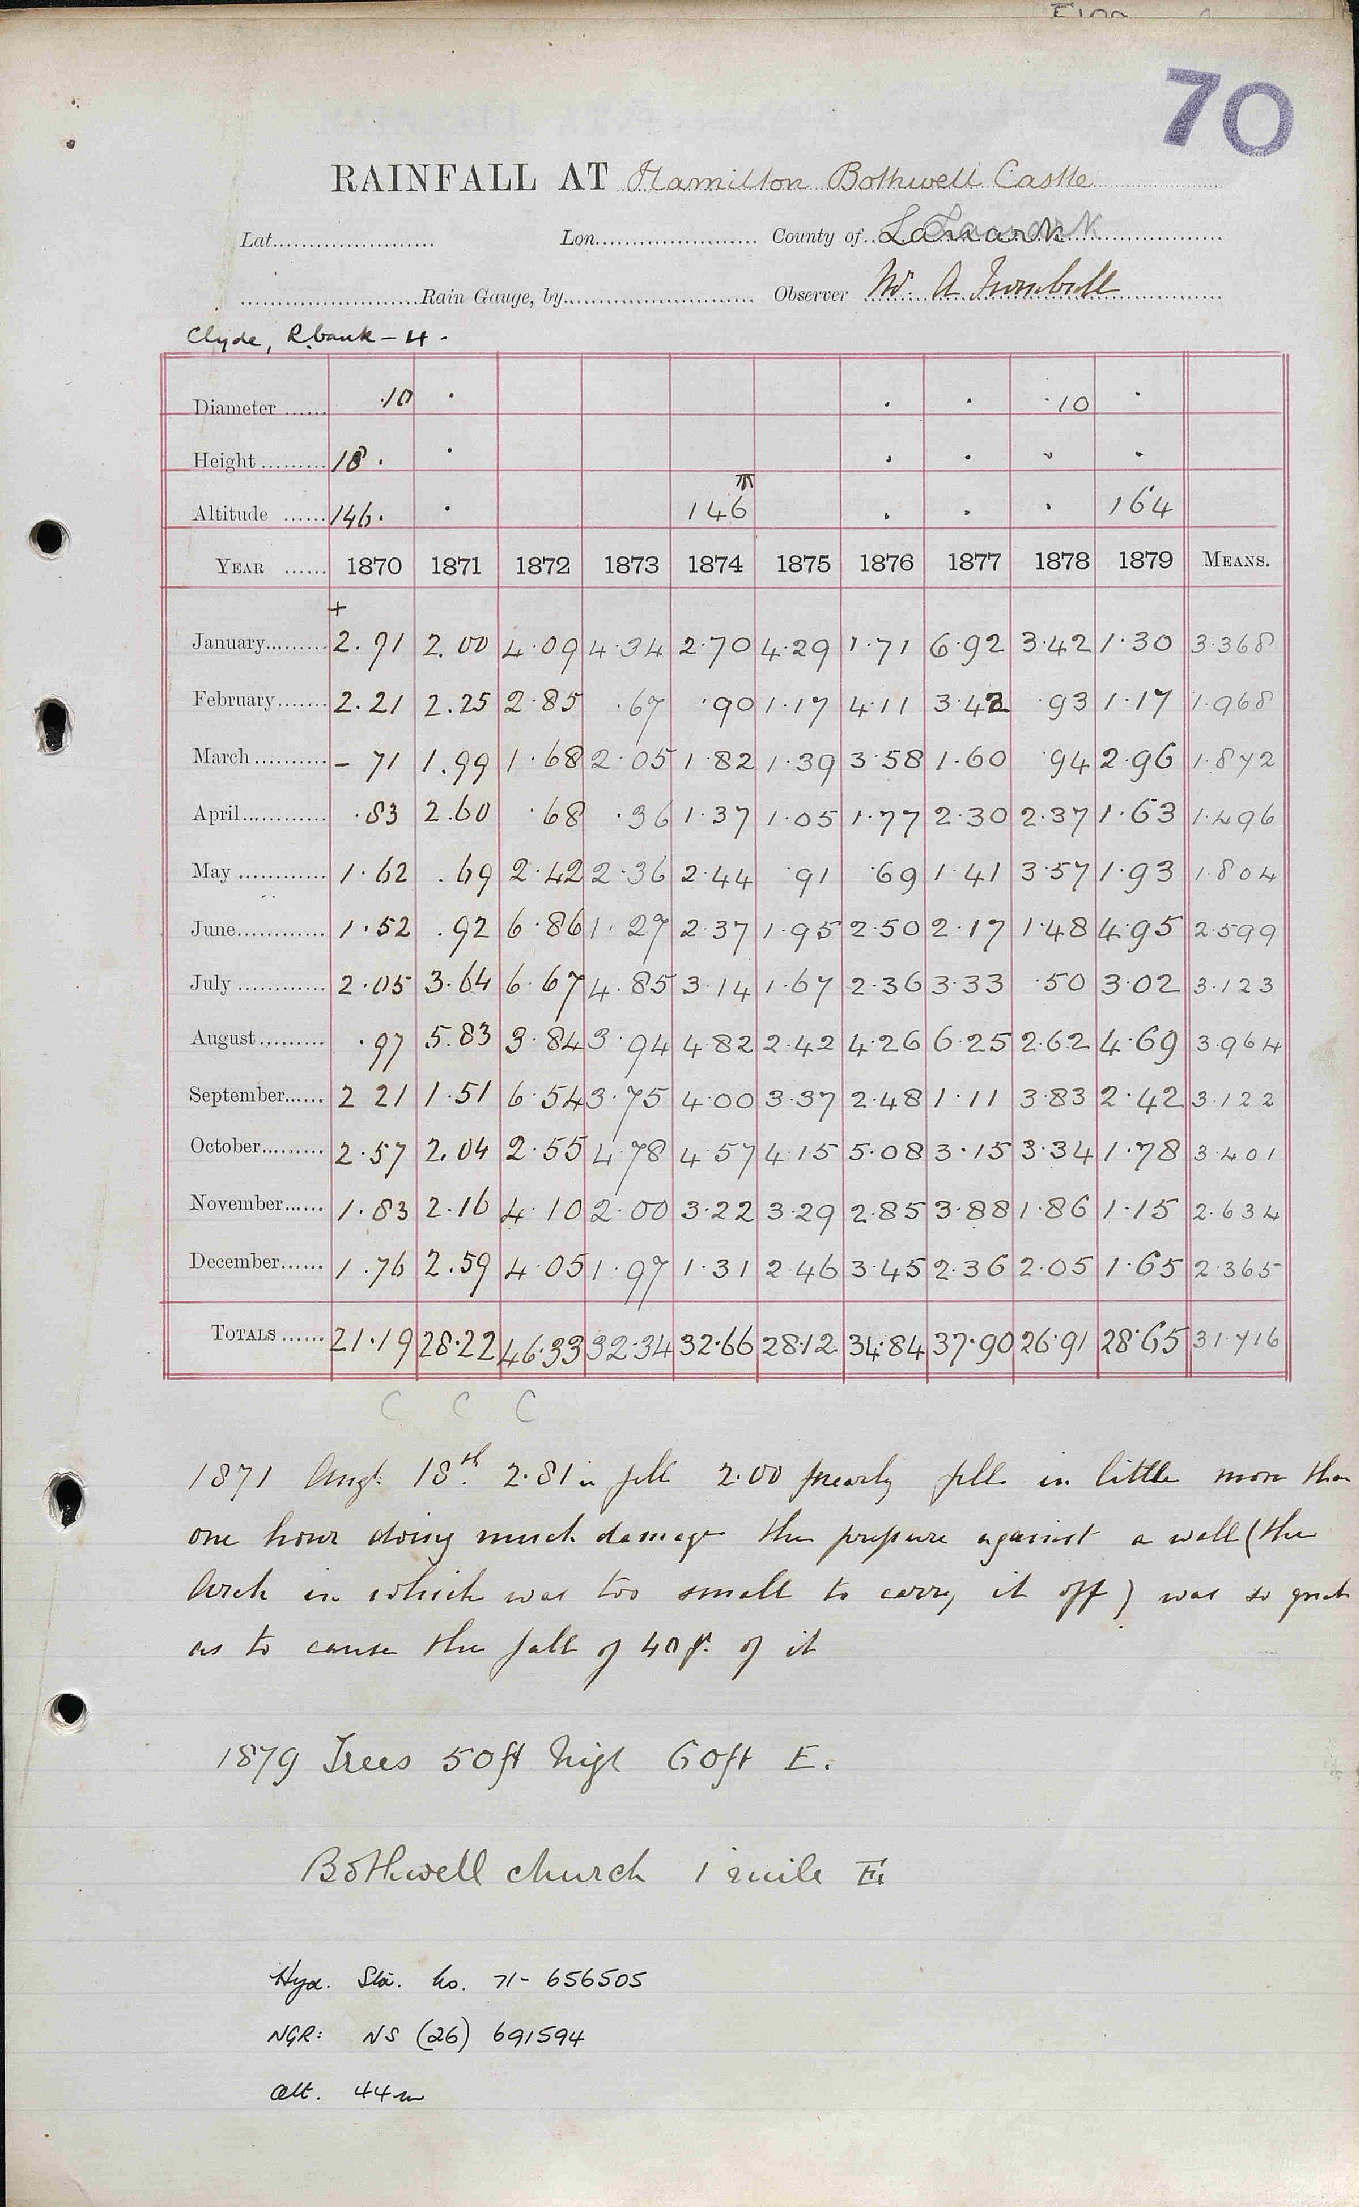 70
RAINFALL AT Hamilton Bothwell Castle
Lat. Lon. County of Lanark
Rain Gauge, by Observer Mr. A Turnbull
Clyde, R.bank - 4.
Diameter ...... ·10 · · · ·10 ·
Height ......... 18. · · · · ·
Altitude ...... 146. · 146 · · · 164
YEAR ...... 1870 1871 1872 1873 1874 1875 1876 1877 1878 1879 MEANS.
+
January......... 2.91 2.00 4.09 4.34 2.70 4.29 1.71 6.92 3.42 1.30 3.368
February........ 2.21 2.25 2.85 .67 .90 1.17 4.11 3.42 .93 1.17 1.968
March .......... - 71 1.99 1.68 2.05 1.82 1.39 3.58 1.60 .94 2.96 1.872
April............ .83 2.60 .68 .36 1.37 1.05 1.77 2.30 2.37 1.63 1.496
May ............ 1.62 .69 2.42 2.36 2.44 .91 .69 1.41 3.57 1.93 1.804
June............ 1.52 .92 6.86 1.27 2.37 1.95 2.50 2.17 1.48 4.95 2.599
July ............ 2.05 3.64 6.67 4.85 3.14 1.67 2.36 3.33 .50 3.02 3.123
August......... .97 5.83 3.84 3.94 4.82 2.42 4.26 6.25 2.62 4.69 3.964
September...... 2 21 1.51 6.54 3.75 4.00 3.37 2.48 1.11 3.83 2.42 3.122
October......... 2.57 2.04 2.55 4.78 4.57 4.15 5.08 3.15 3.34 1.78 3.401
November...... 1.83 2.16 4.10 2.00 3.22 3.29 2.85 3.88 1.86 1.15 2.634
December...... 1.76 2.59 4.05 1.97 1.31 2.46 3.45 2.36 2.05 1.65 2.365
TOTALS ...... 21.19 28.22 46.33 32.34 32.66 28.12 34.84 37.90 26.91 28.65 31.716
C C C
1871 Augt. 18th 2.81 in fell 2.00 nearly fell in little more than
one hour doing much damage the pressure against a wall (the
Arch in which was too small to carry it off) was so great
as to cause the fall of 40 ft. of it
1879 Trees 50ft high 60ft E.
Bothwell church 1 mile E
Hyd. Sta. No. 71- 656505
NGR: NS (26) 691594
Alt. 44m